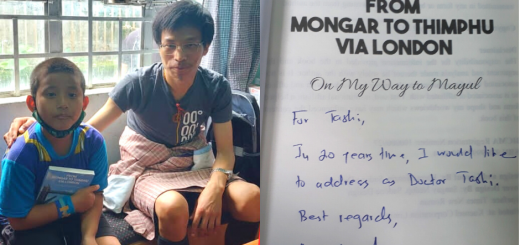 FROM
MONGAR TO THIMPHU
VIA LONDON
On My Way to Mayul
For Tashi,
In 20 years time, I would like
to address as Doctor Tashi.
Best regards,